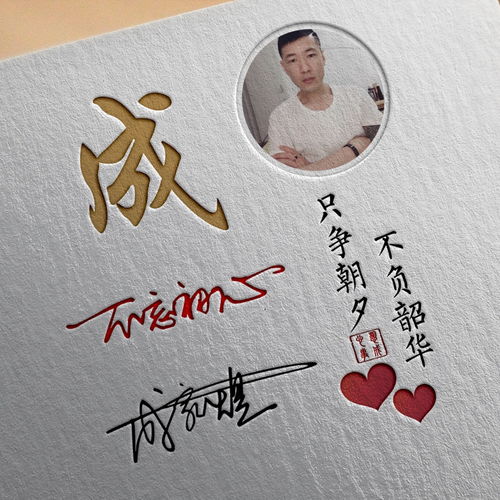 成
不忘初心
只争朝夕
不负韶华